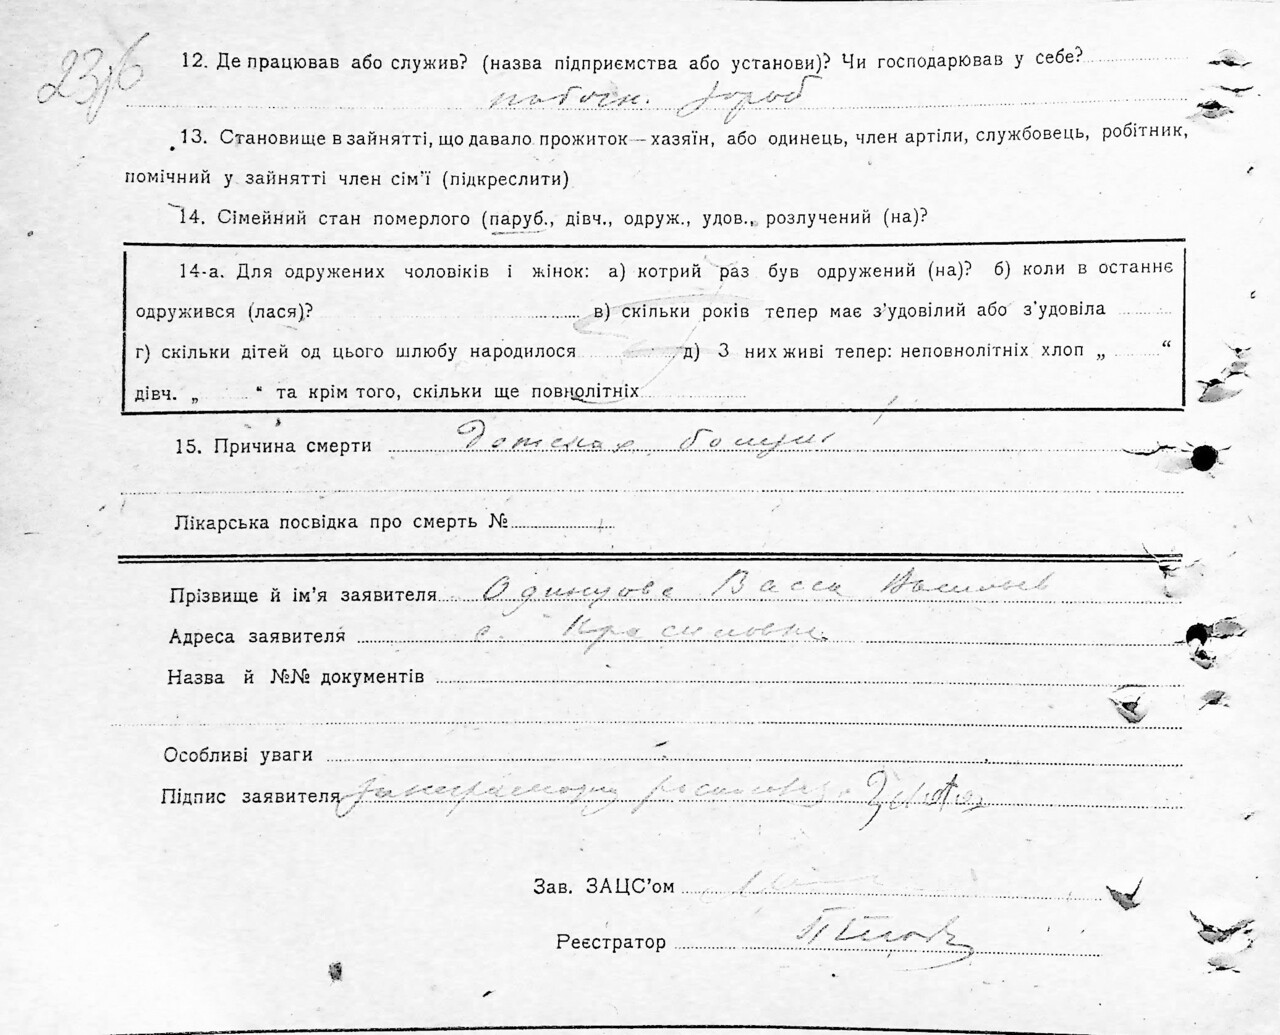 12. Де працював або служив? (назва підприємства або установи)? Чи господарював у себе?
13. Становище в зайнятті, що давало прожиток — хазяїн, або одинець, член артіли, службовець, робітник,
помічний у зайнятті член сім'ї (підкреслити)
14. Сімейний стан померлого (паруб., дівч., одруж., удов., розлучений (на)?
14-а. Для одружених чоловіків і жінок: а) котрий раз був одружений (на)? б) коли в останнє
одружився (лася)? в) скільки років тепер має з'удовілий або з'удовіла
г) скільки дітей од цього шлюбу народилося д) З них живі тепер: неповнолітніх хлоп „ “
дівч. „ “ та крім того, скільки ще повнолітніх
15. Причина смерти Детская
Лікарська посвідка про смерть №
Прізвище й ім'я заявителя Одинцова Васса
Адреса заявителя с
Назва й №№ документів
Особливі уваги
Підпис заявителя
Зав. ЗАЦС'ом
Реєстратор